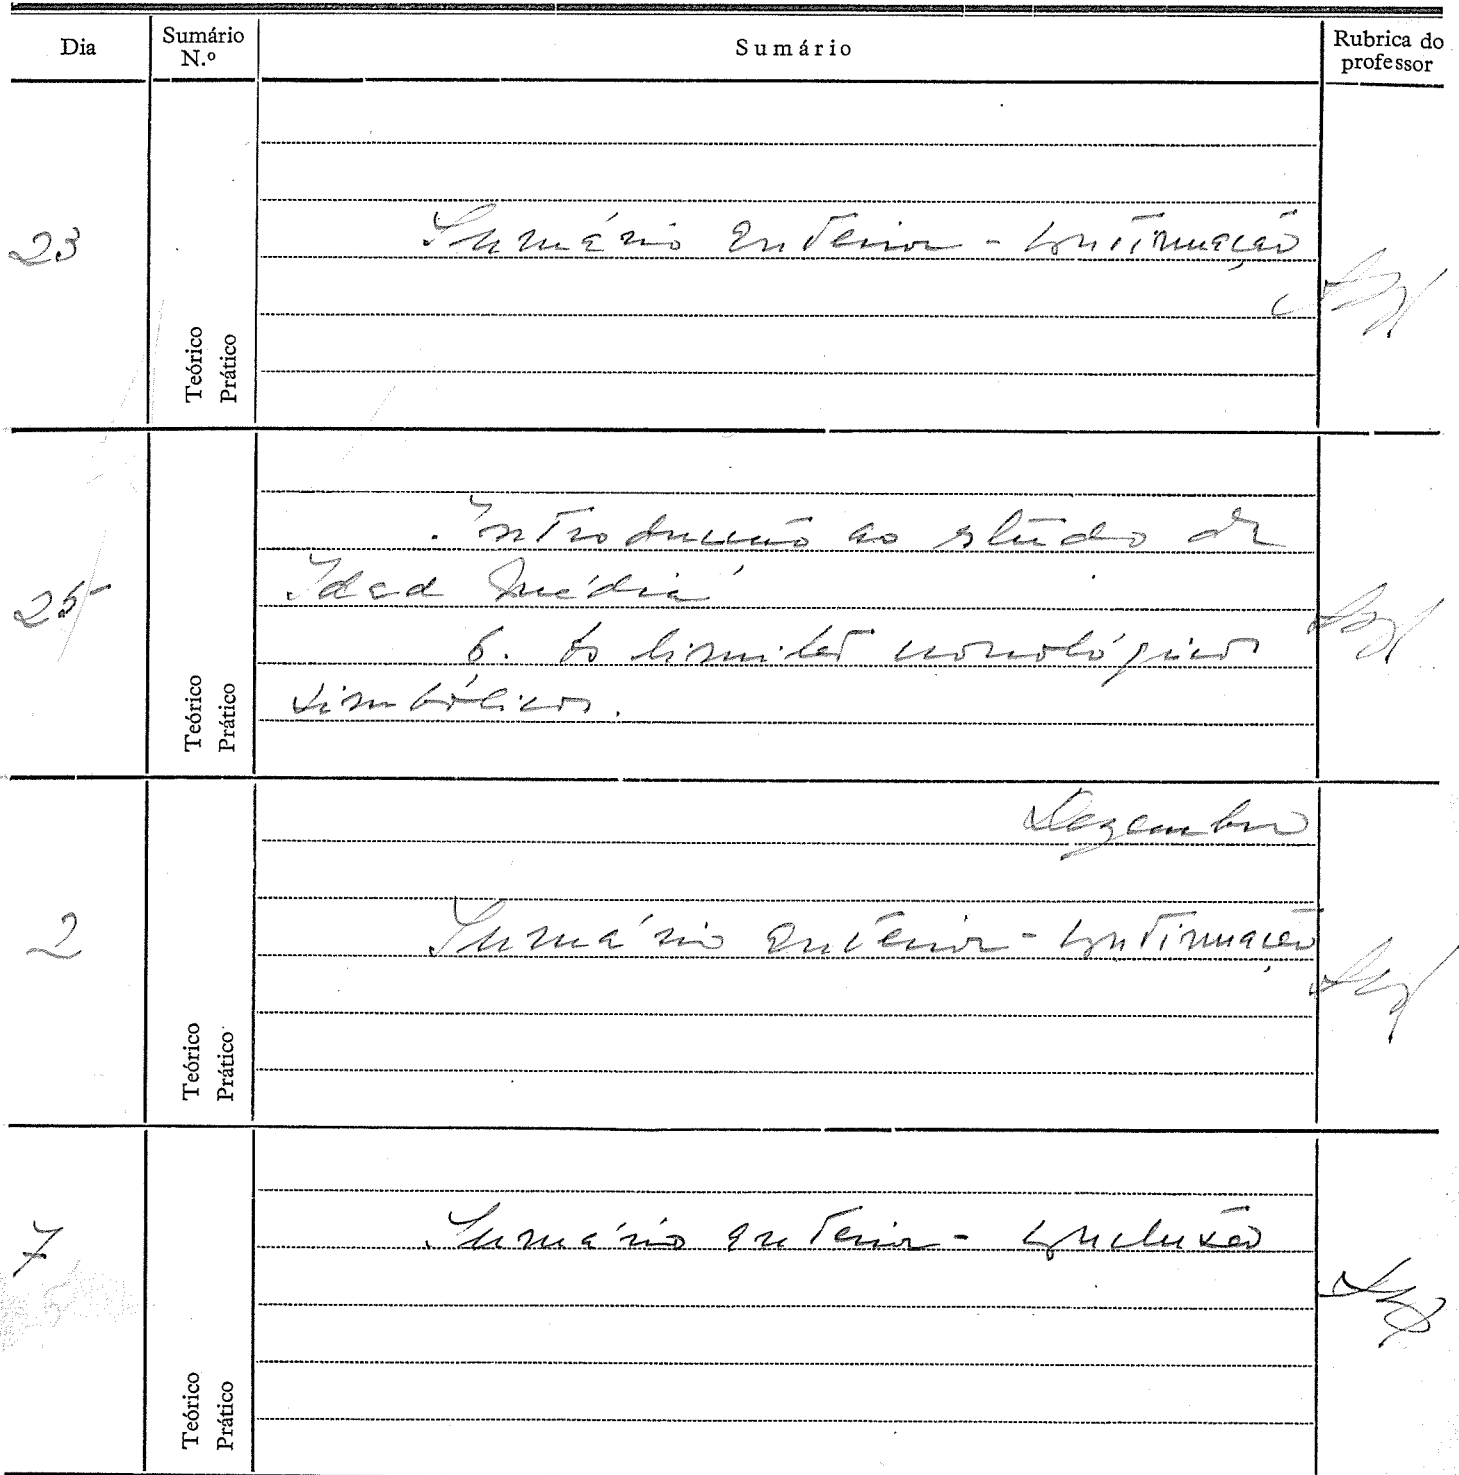 Dia
Sumário N.º
Sumário
Rubrica do professor
23
Teórico
Prático
Sumário anterior - continuação
25
Teórico
Prático
. Introdução ao estudo da
Idade Média
6. Os limites cronológicos
simbólicos.
2
Teórico
Prático
Dezembro
Sumário anterior - continuação
7
Teórico
Prático
Sumário anterior - conclusão